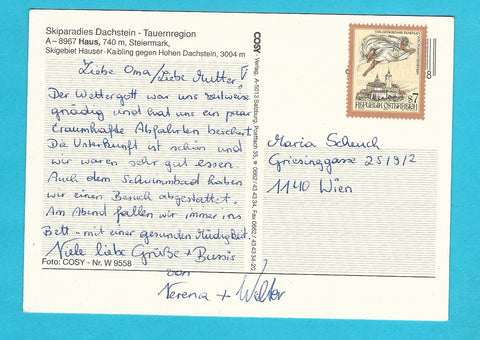 Skiparadies Dachstein - Tauernregion
A – 8967 Haus, 740 m, Steiermark,
Skigebiet Hauser-Kaibling gegen Hohen Dachstein, 3004 m
Liebe Oma/Liebe Mutter!
Der Wettergott war uns zeitweise
gnädig und hat uns ein paar
traumhafte Abfahrten beschert.
Die Unterkunft ist schön und
wir waren sehr gut essen.
Auch dem Schwimmbad haben
wir einen Besuch abgestattet.
Am Abend fallen wir immer ins
Bett - mit einer gesunden Müdigkeit.
Viele liebe Grüße + Bussis
von
Verena + Walter
Foto: COSY - Nr. W 9558
COSY Verlag, A-5013 Salzburg, Postfach 35, 0662 / 43 43 34, Fax 0662 / 43 43 34-20
S7
REPUBLIK ÖSTERREICH
8
Maria Scheuch
Griesinggasse 25/9/2
1140 Wien